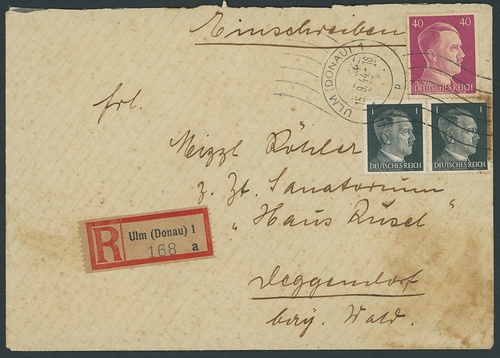 Einschreiben
40 40
DEUTSCHES REICH
ULM (DONAU) 1
16.9.44.-18
a
1 1
DEUTSCHES REICH
1 1
DEUTSCHES REICH
Frl.
Mizzl Röhler
z. Zt. Sanatorium
„Haus Rusel"
Deggendorf
bay. Wald.
R
Ulm (Donau) 1
168 a